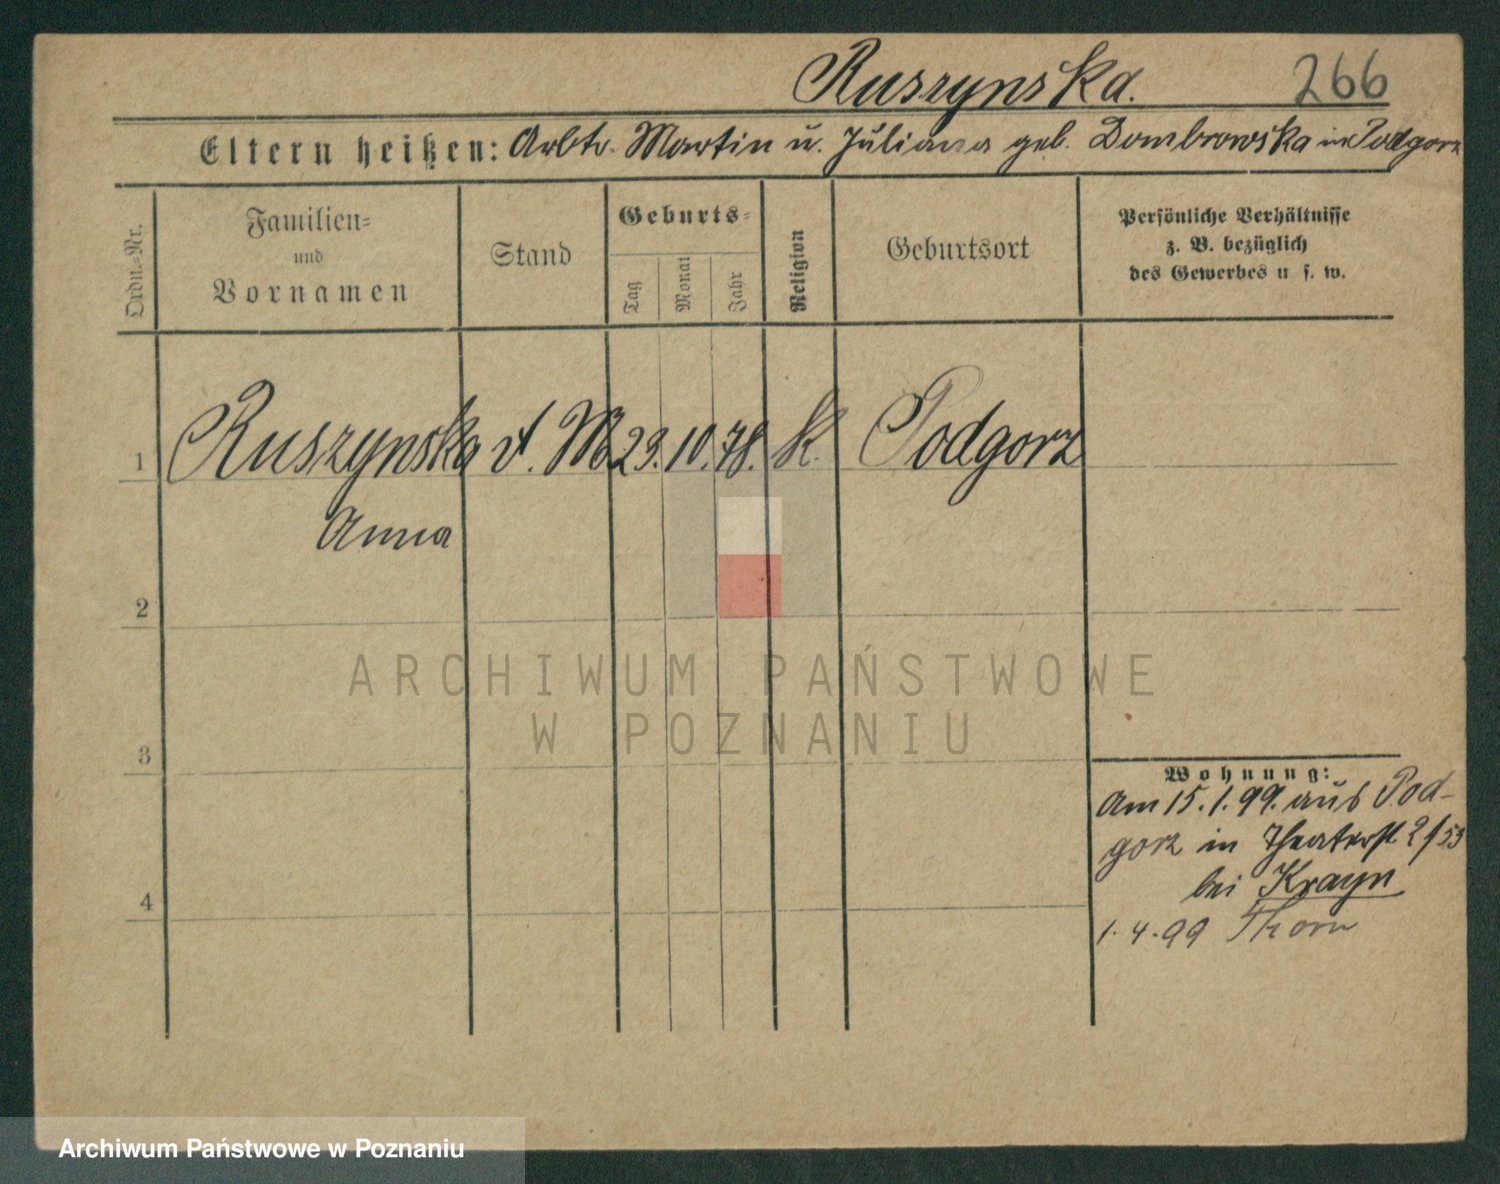 Ruszynska.
266
Eltern heißen: Arbtr. Martin u. Juliana geb. Dombrowska in Podgorz
Ordn.-Nr.
Familien-
und
Vornamen
Stand
Geburts-
Tag
Monat
Jahr
Religion
Geburtsort
Persönliche Verhältnisse
z. B. bezüglich
des Gewerbes u. s. w.
1 Ruszynska d. M 29. 10. 78. K. Podgorz
Anna
2
ARCHIWUM PAŃSTWOWE
W POZNANIU
3
Wohnung:
Am 15. 1. 99. aus Pod-
gorz in Theaterst 2/53
bei Krayn
4
1. 4. 99 Thorn
Archiwum Państwowe w Poznaniu